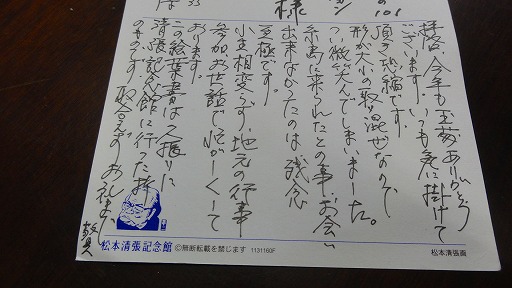 様
拝啓 今年も玉葱ありがとう
ございます。いつも気に掛けて
頂き恐縮です。
形が大小の取り混ぜなので
つい微笑んでしまいました。
糸島に来られたとの事、お会い
出来なかったのは残念
至極です。
小生相変らず、地元の行事
参加、お世話で忙がしくして
おります。
この絵葉書は久振りに
清張記念館に行った折
のものです。取合えずお礼まで
敬具
松本清張記念館 ©無断転載を禁じます 1131160F
松本清張画